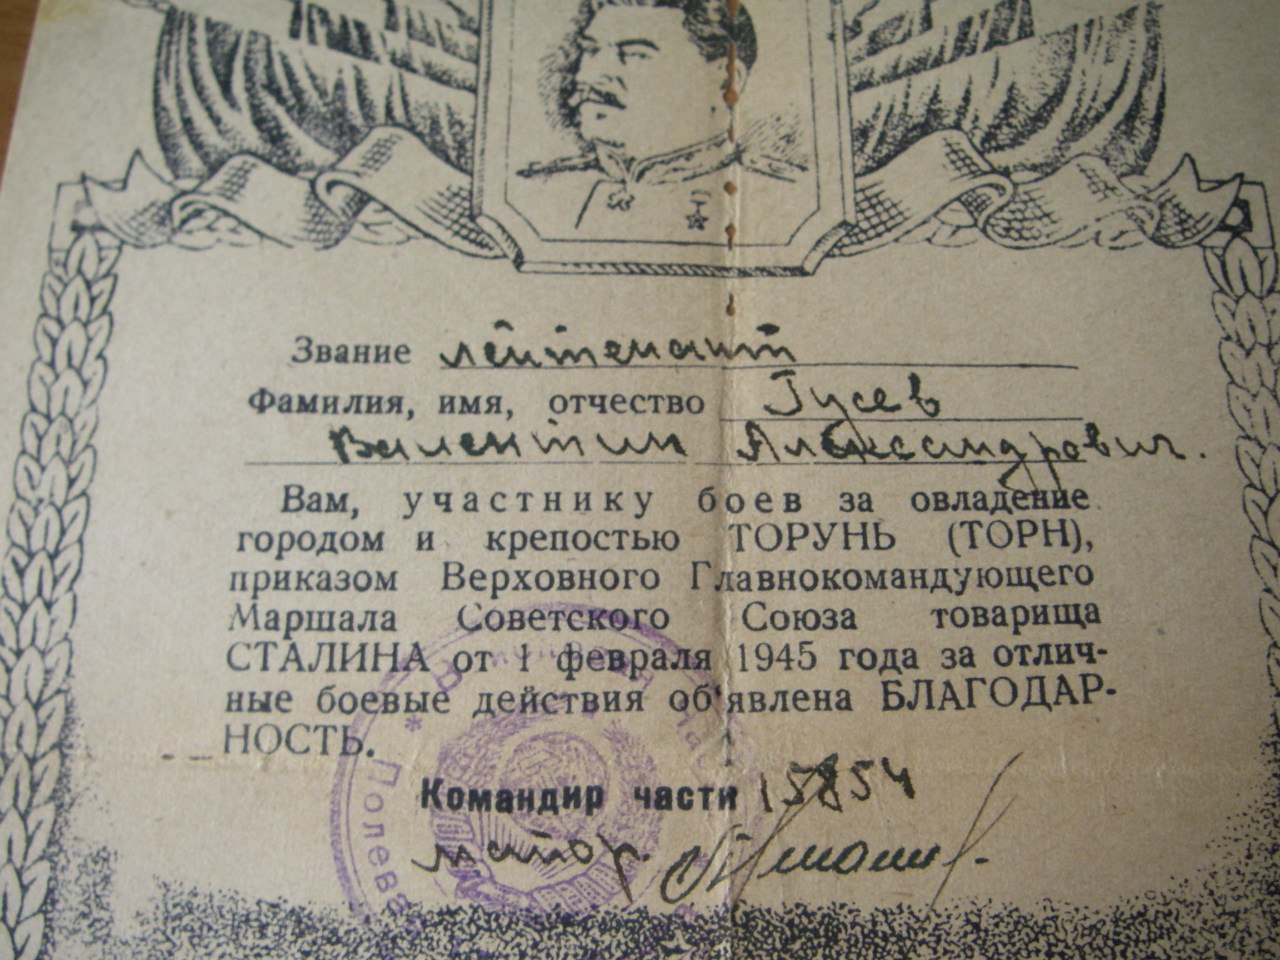 Звание лейтенант
Фамилия, имя, отчество Гусев
Валентин Александрович.
Вам, участнику боев за овладение
городом и крепостью ТОРУНЬ (ТОРН),
приказом Верховного Главнокомандующего
Маршала Советского Союза товарища
СТАЛИНА от 1 февраля 1945 года за отлич-
ные боевые действия об'явлена БЛАГОДАР-
НОСТЬ.
Командир части 15854
майор